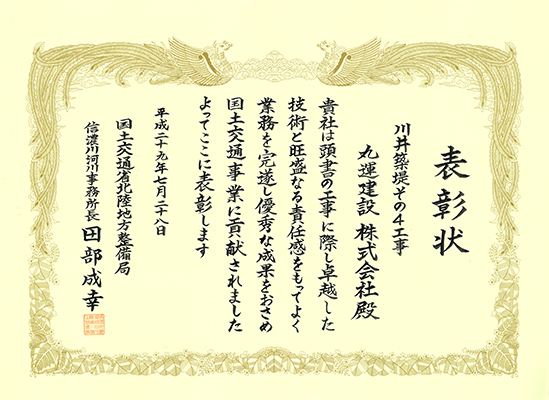 表彰状
川井築堤その4工事
丸運建設 株式会社殿
貴社は頭書の工事に際し卓越した
技術と旺盛なる責任感をもってよく
業務を完遂し優秀な成果をおさめ
国土交通事業に貢献されました
よってここに表彰します
平成二十九年七月二十八日
国土交通省北陸地方整備局
信濃川河川事務所長 田部成幸